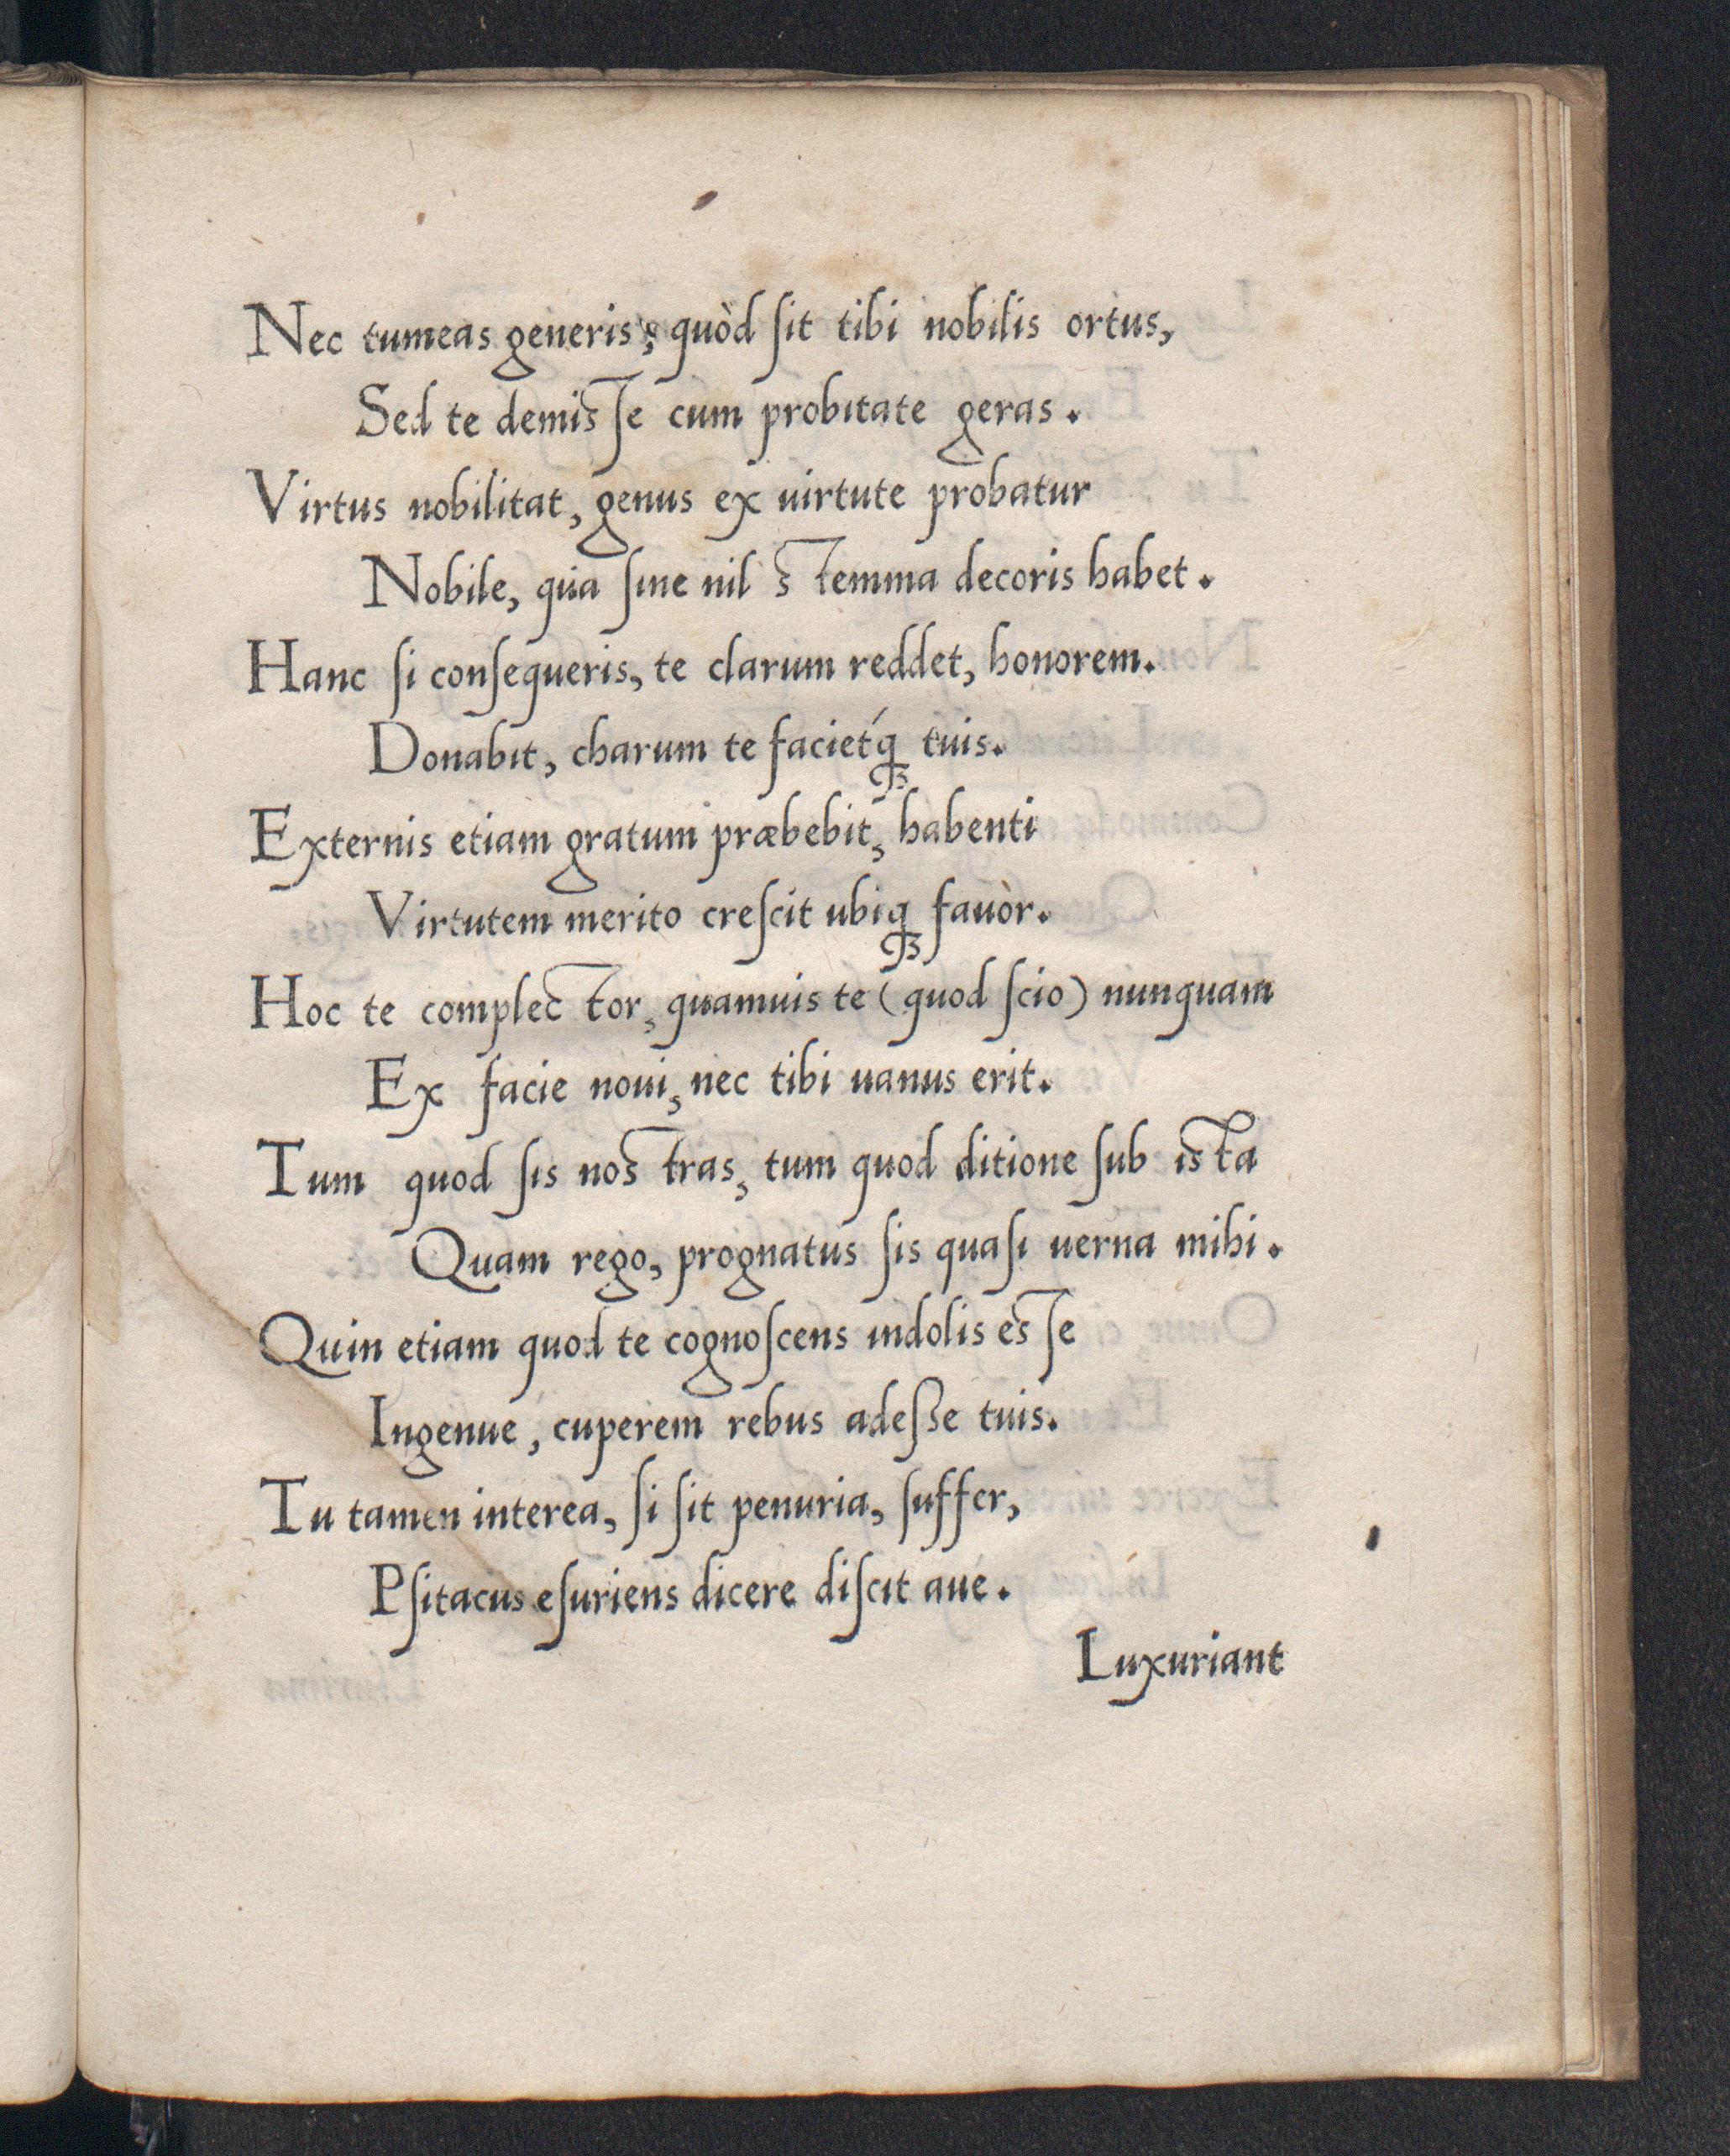 Nec tumeas generis, quòd ſit tibi nobilis ortus,
Sed te demisſe cum probitate geras.
Virtus nobilitat, genus ex uirtute probatur
Nobile, qua ſine nil stemma decoris habet.
Hanc ſi conſequeris, te clarum reddet, honorem.
Donabit, charum te facietq́ꝫ tuis.
Externis etiam gratum præbebit, habenti
Virtutem merito creſcit ubiqꝫ fauòr.
Hoc te complector, quamuis te (quod ſcio) nunquam
Ex facie noui, nec tibi uanus erit.
Tum quod ſis nostras, tum quod ditione ſub ista
Quam rego, prognatus ſis quaſi uerna mihi.
Quin etiam quod te cognoſcens indolis esſe
Ingenue, cuperem rebus adeſſe tuis.
Tu tamen interea, ſi ſit penuria, ſuffer,
Pſitacus eſuriens dicere diſcit aue.
Luxuriant